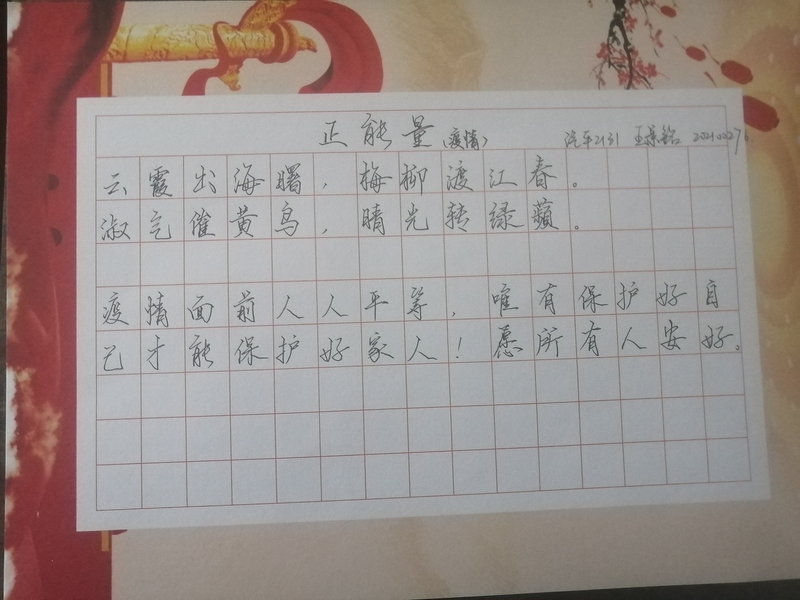 正能量(疫情) 汽车2131 王景铭 202102276
云霞出海曙，梅柳渡江春。
淑气催黄鸟，晴光转绿蘋。
疫情面前人人平等，唯有保护好自
己才能保护好家人！愿所有人安好。